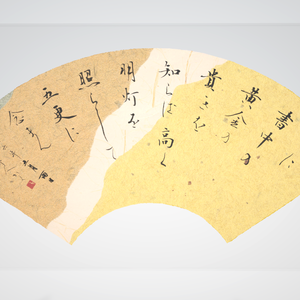 書中に
黄金の
貴きを
知らば高く
明灯を
照らして
五更に